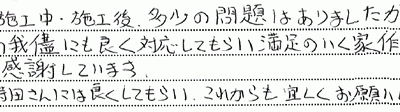 施工中・施工後、多少の問題はありましたが
の我儘にも良く対応してもらい満足のいく家作
感謝しています。
田さんには良くしてもらい、これからも宜しくお願い